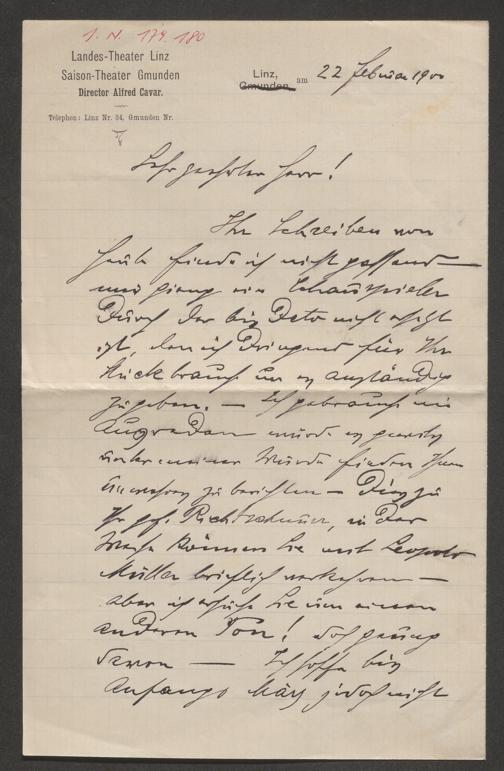 I. N. 174.180
Landes-Theater Linz
Saison-Theater Gmunden
Director Alfred Cavar.
Telephon: Linz Nr. 34, Gmunden Nr.
Linz,
Gmunden, am 22 Februar 1900
Sehr geehrter Herr!
Ihr Schreiben von
heute finde ich nicht passend —
mir ging ein Schauspieler
durch der bis Dato nicht ersetzt
ist, den ich dringend für Ihr
Stück brauch um es anständig
zu geben. — Ich gebrauch nie
Ausreden würde es
unter meiner Würde finden Ihnen
Unwahres zu berichten — Dies zu
Ihr gef. Richtschnur, in der
Weise können Sie mit Leopold
Müller brieflich verkehren —
aber ich ersuche Sie um einen
anderen Ton! doch genug
davon — Ich hoffe bis
Anfangs März jedoch nicht